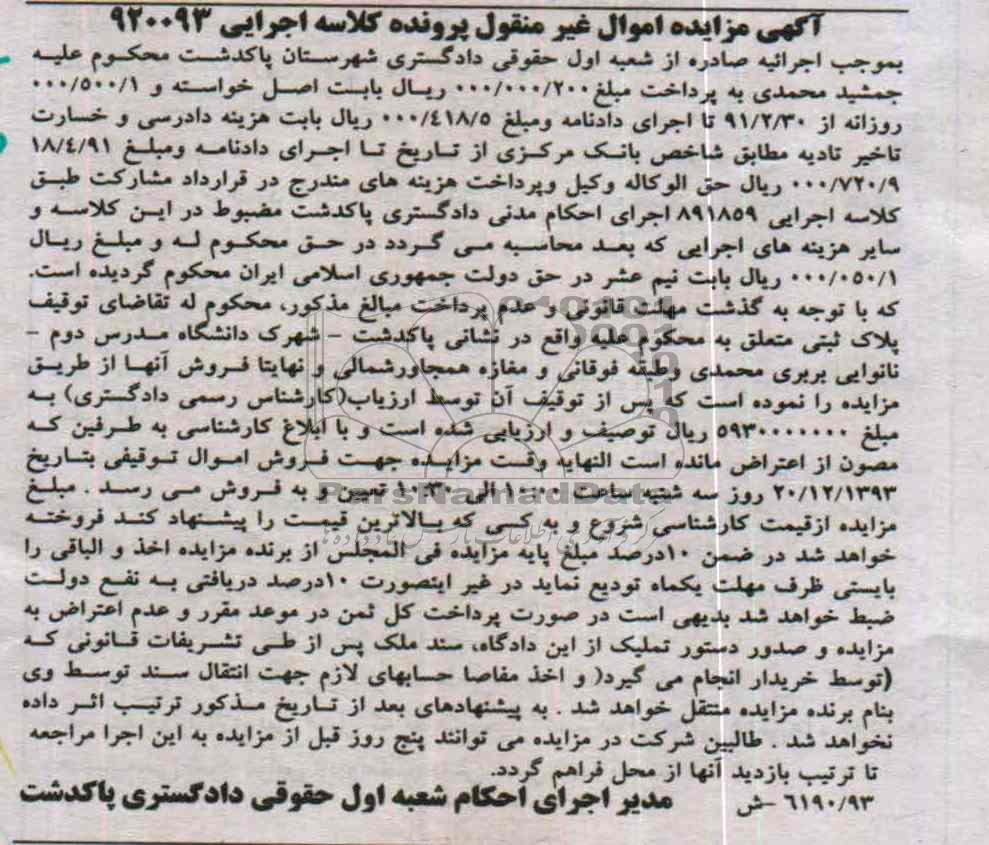 آگهی مزایده اموال غیر منقول پرونده کلاسه اجرایی ۹۲۰۰۹۳
بموجب اجرائیه صادره از شعبه اول حقوقی دادگستری شهرستان پاکدشت محکوم علیه
جمشید محمدی به پرداخت مبلغ ۰۰۰/۰۰۰/۲۰۰ ریال بابت اصل خواسته و ۰۰۰/۵۰۰/۱
روزانه از ۹۱/۲/۳۰ تا اجرای دادنامه ومبلغ ۰۰۰/٤۱۸/۵ ریال بابت هزینه دادرسی و خسارت
تاخیر تادیه مطابق شاخص بانک مرکزی از تاریخ تا اجرای دادنامه ومبلغ ۱۸/٤/۹۱
۰۰۰/۷۲۰/۹ ریال حق الوکاله وکیل وپرداخت هزینه های مندرج در قرارداد مشارکت طبق
کلاسه اجرایی ۸۹۱۸۵۹ اجرای احکام مدنی دادگستری پاکدشت مضبوط در این کلاسه و
سایر هزینه های اجرایی که بعد محاسبه می گردد در حق محکوم له و مبلغ ریال
۰۰۰/۰۵۰/۱ ریال بابت نیم عشر در حق دولت جمهوری اسلامی ایران محکوم گردیده است.
که با توجه به گذشت مهلت قانونی و عدم پرداخت مبالغ مذکور، محکوم له تقاضای توقیف
پلاک ثبتی متعلق به محکوم علیه واقع در نشانی پاکدشت – شهرک دانشگاه مدرس دوم –
نانوایی بربری محمدی وطبقه فوقانی و مغازه همجاورشمالی و نهایتا فروش آنها از طریق
مزایده را نموده است که پس از توقیف آن توسط ارزیاب(کارشناس رسمی دادگستری) به
مبلغ ۵۹۳۰۰۰۰۰۰۰ ریال توصیف و ارزیابی شده است و با ابلاغ کارشناسی به طرفین که
مصون از اعتراض مانده است النهایه وقت مزایده جهت فروش اموال توقیفی بتاریخ
۲۰/۱۲/۱۳۹۳ روز سه شنبه ساعت ۱۰:۰۰ الی ۱۰:۳۰ تعیین و به فروش می رسد . مبلغ
ParsNamadData
مزایده ازقیمت کارشناسی شروع و به کسی که بالاترین قیمت را پیشنهاد کند فروخته
خواهد شد در ضمن ۱۰درصد مبلغ پایه مزایده فی المجلس از برنده مزایده اخذ و الباقی را
بایستی ظرف مهلت یکماه تودیع نماید در غیر اینصورت ۱۰درصد دریافتی به نفع دولت
ضبط خواهد شد بدیهی است در صورت پرداخت کل ثمن در موعد مقرر و عدم اعتراض به
مزایده و صدور دستور تملیک از این دادگاه، سند ملک پس از طی تشریفات قانونی که
(توسط خریدار انجام می گیرد( و اخذ مفاصا حسابهای لازم جهت انتقال سند توسط وی
بنام برنده مزایده منتقل خواهد شد . به پیشنهادهای بعد از تاریخ مذکور ترتیب اثر داده
نخواهد شد . طالبین شرکت در مزایده می توانند پنج روز قبل از مزایده به این اجرا مراجعه
تا ترتیب بازدید آنها از محل فراهم گردد.
۶۱۹۰/۹۳ –ش مدیر اجرای احکام شعبه اول حقوقی دادگستری پاکدشت